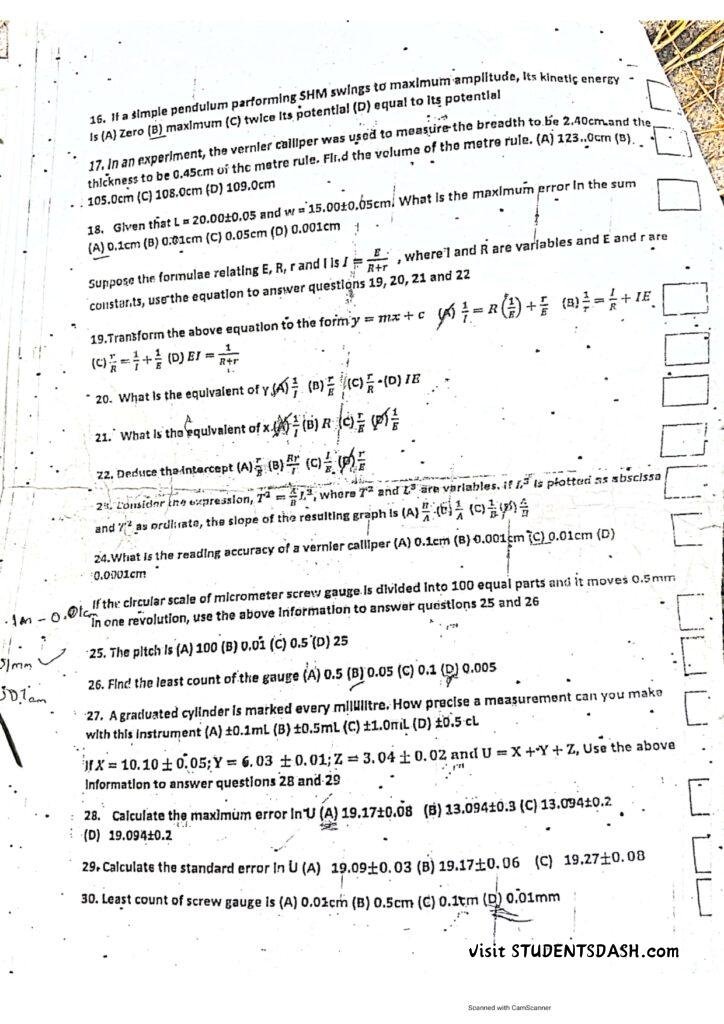 16. If a simple pendulum parforming SHM swings to maximum amplitude, its kinetic energy
is (A) Zero (B) maximum (C) twice its potential (D) equal to its potential
17. In an experiment, the vernier calliper was used to measure the breadth to be 2.40cm and the
thickness to be 0.45cm of the metre rule. Find the volume of the metre rule. (A) 123..0cm (B)
105.0cm (C) 108.0cm (D) 109.0cm
18. Given that L = 20.00±0.05 and w = 15.00±0.05cm. What is the maximum error in the sum
(A) 0.1cm (B) 0.01cm (C) 0.05cm (D) 0.001cm
Suppose the formulae relating E, R, r and I is I = E/(R+r) , where I and R are variables and E and r are
constants, use the equation to answer questions 19, 20, 21 and 22
19.Transform the above equation to the form y = mx + c (A) 1/I = R (1/E) + r/E (B) 1/r = I/R + IE
(C) r/R = 1/I + 1/E (D) EI = 1/(R+r)
20. What is the equivalent of y (A) 1/I (B) r/E (C) r/R (D) IE
21. What is the equivalent of x (A) 1/I (B) R (C) r/E (D) 1/E
22. Deduce the intercept (A) (B) (C) I/E (D) r/E
23. Consider the expression, T² = A/B L³, where T² and L³ are variables. If L³ is plotted as abscissa
and T² as ordinate, the slope of the resulting graph is (A) B/A (B) 1/A (C) 1/B (D) A/B
24.What is the reading accuracy of a vernier calliper (A) 0.1cm (B) 0.001cm (C) 0.01cm (D)
0.0001cm
If the circular scale of micrometer screw gauge is divided into 100 equal parts and it moves 0.5mm
in one revolution, use the above information to answer questions 25 and 26
25. The pitch is (A) 100 (B) 0.01 (C) 0.5 (D) 25
26. Find the least count of the gauge (A) 0.5 (B) 0.05 (C) 0.1 (D) 0.005
27. A graduated cylinder is marked every millilitre. How precise a measurement can you make
with this instrument (A) ±0.1mL (B) ±0.5mL (C) ±1.0mL (D) ±0.5 cL
If X = 10.10 ± 0.05; Y = 6.03 ± 0.01; Z = 3.04 ± 0.02 and U = X + Y + Z, Use the above
information to answer questions 28 and 29
28. Calculate the maximum error in U (A) 19.17±0.08 (B) 13.094±0.3 (C) 13.094±0.2
(D) 19.094±0.2
29. Calculate the standard error in U (A) 19.09±0.03 (B) 19.17±0.06 (C) 19.27±0.08
30. Least count of screw gauge is (A) 0.01cm (B) 0.5cm (C) 0.1cm (D) 0.01mm
visit STUDENTSDASH.com
Scanned with CamScanner